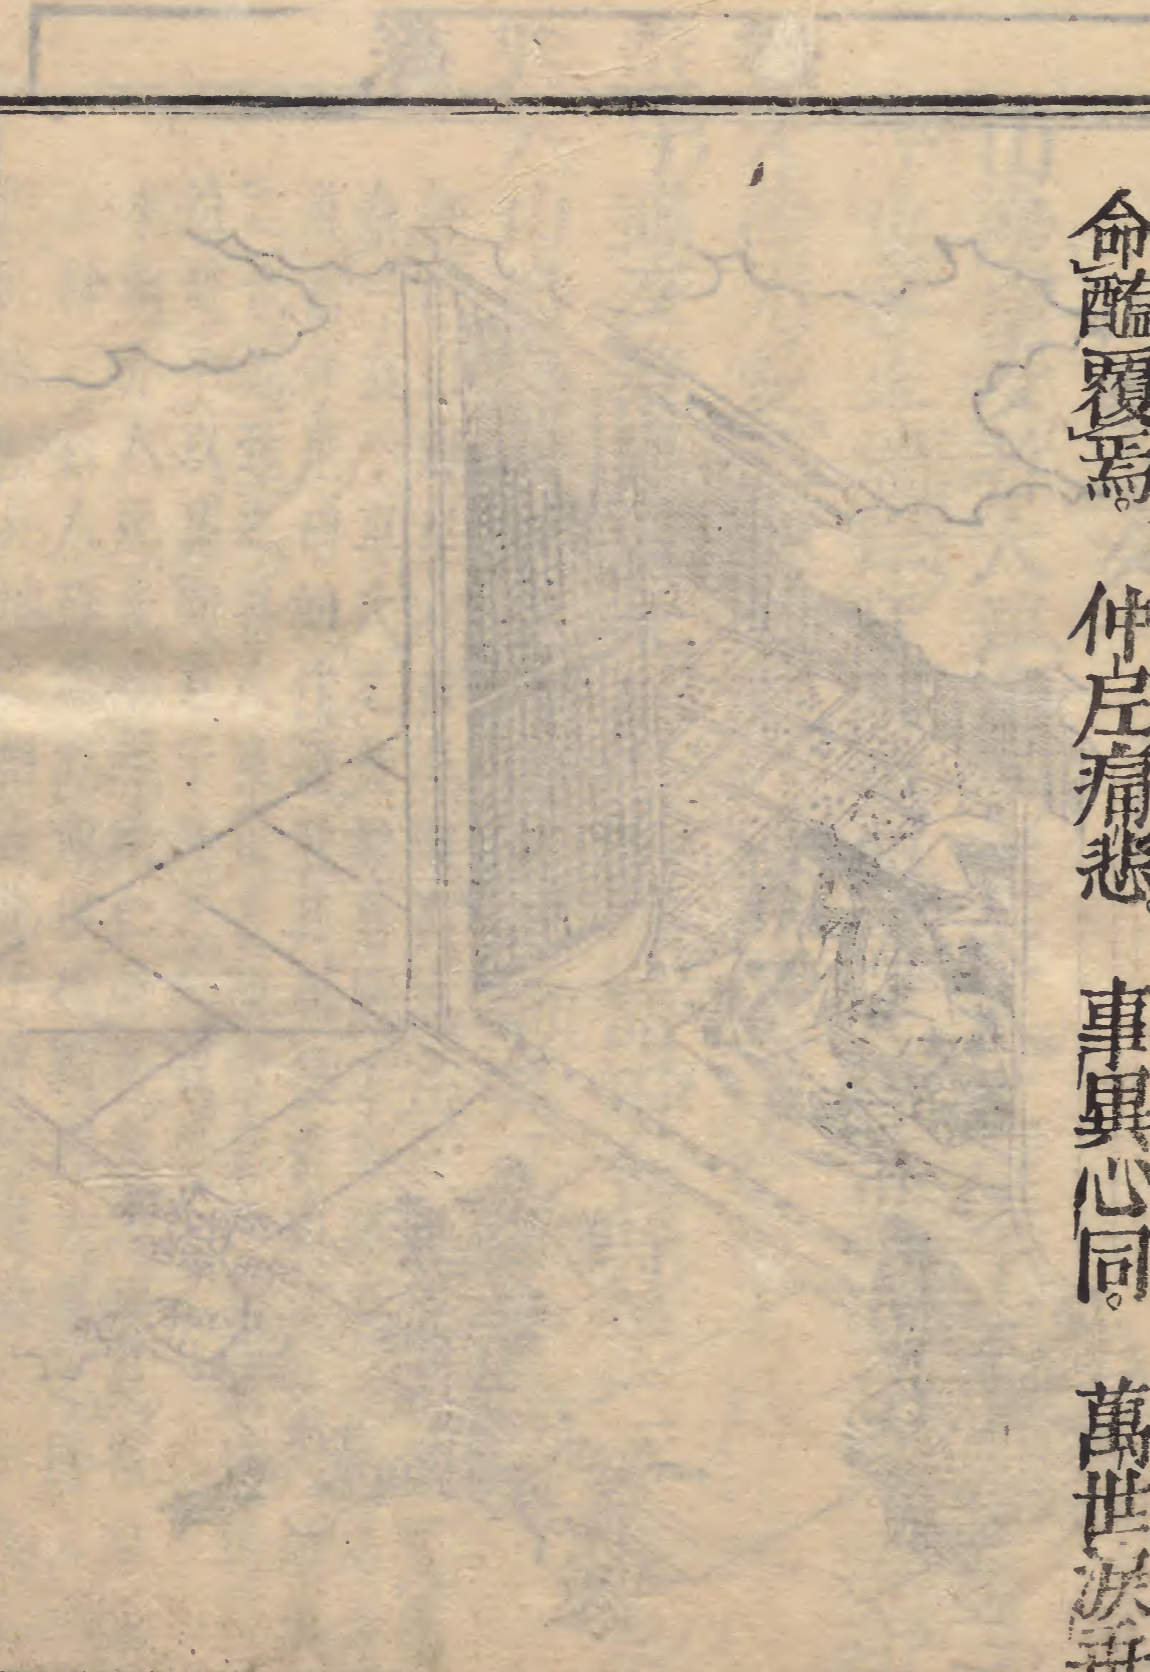 命醢覆焉。 仲尼痛悲。 事異心同。 萬世淚垂